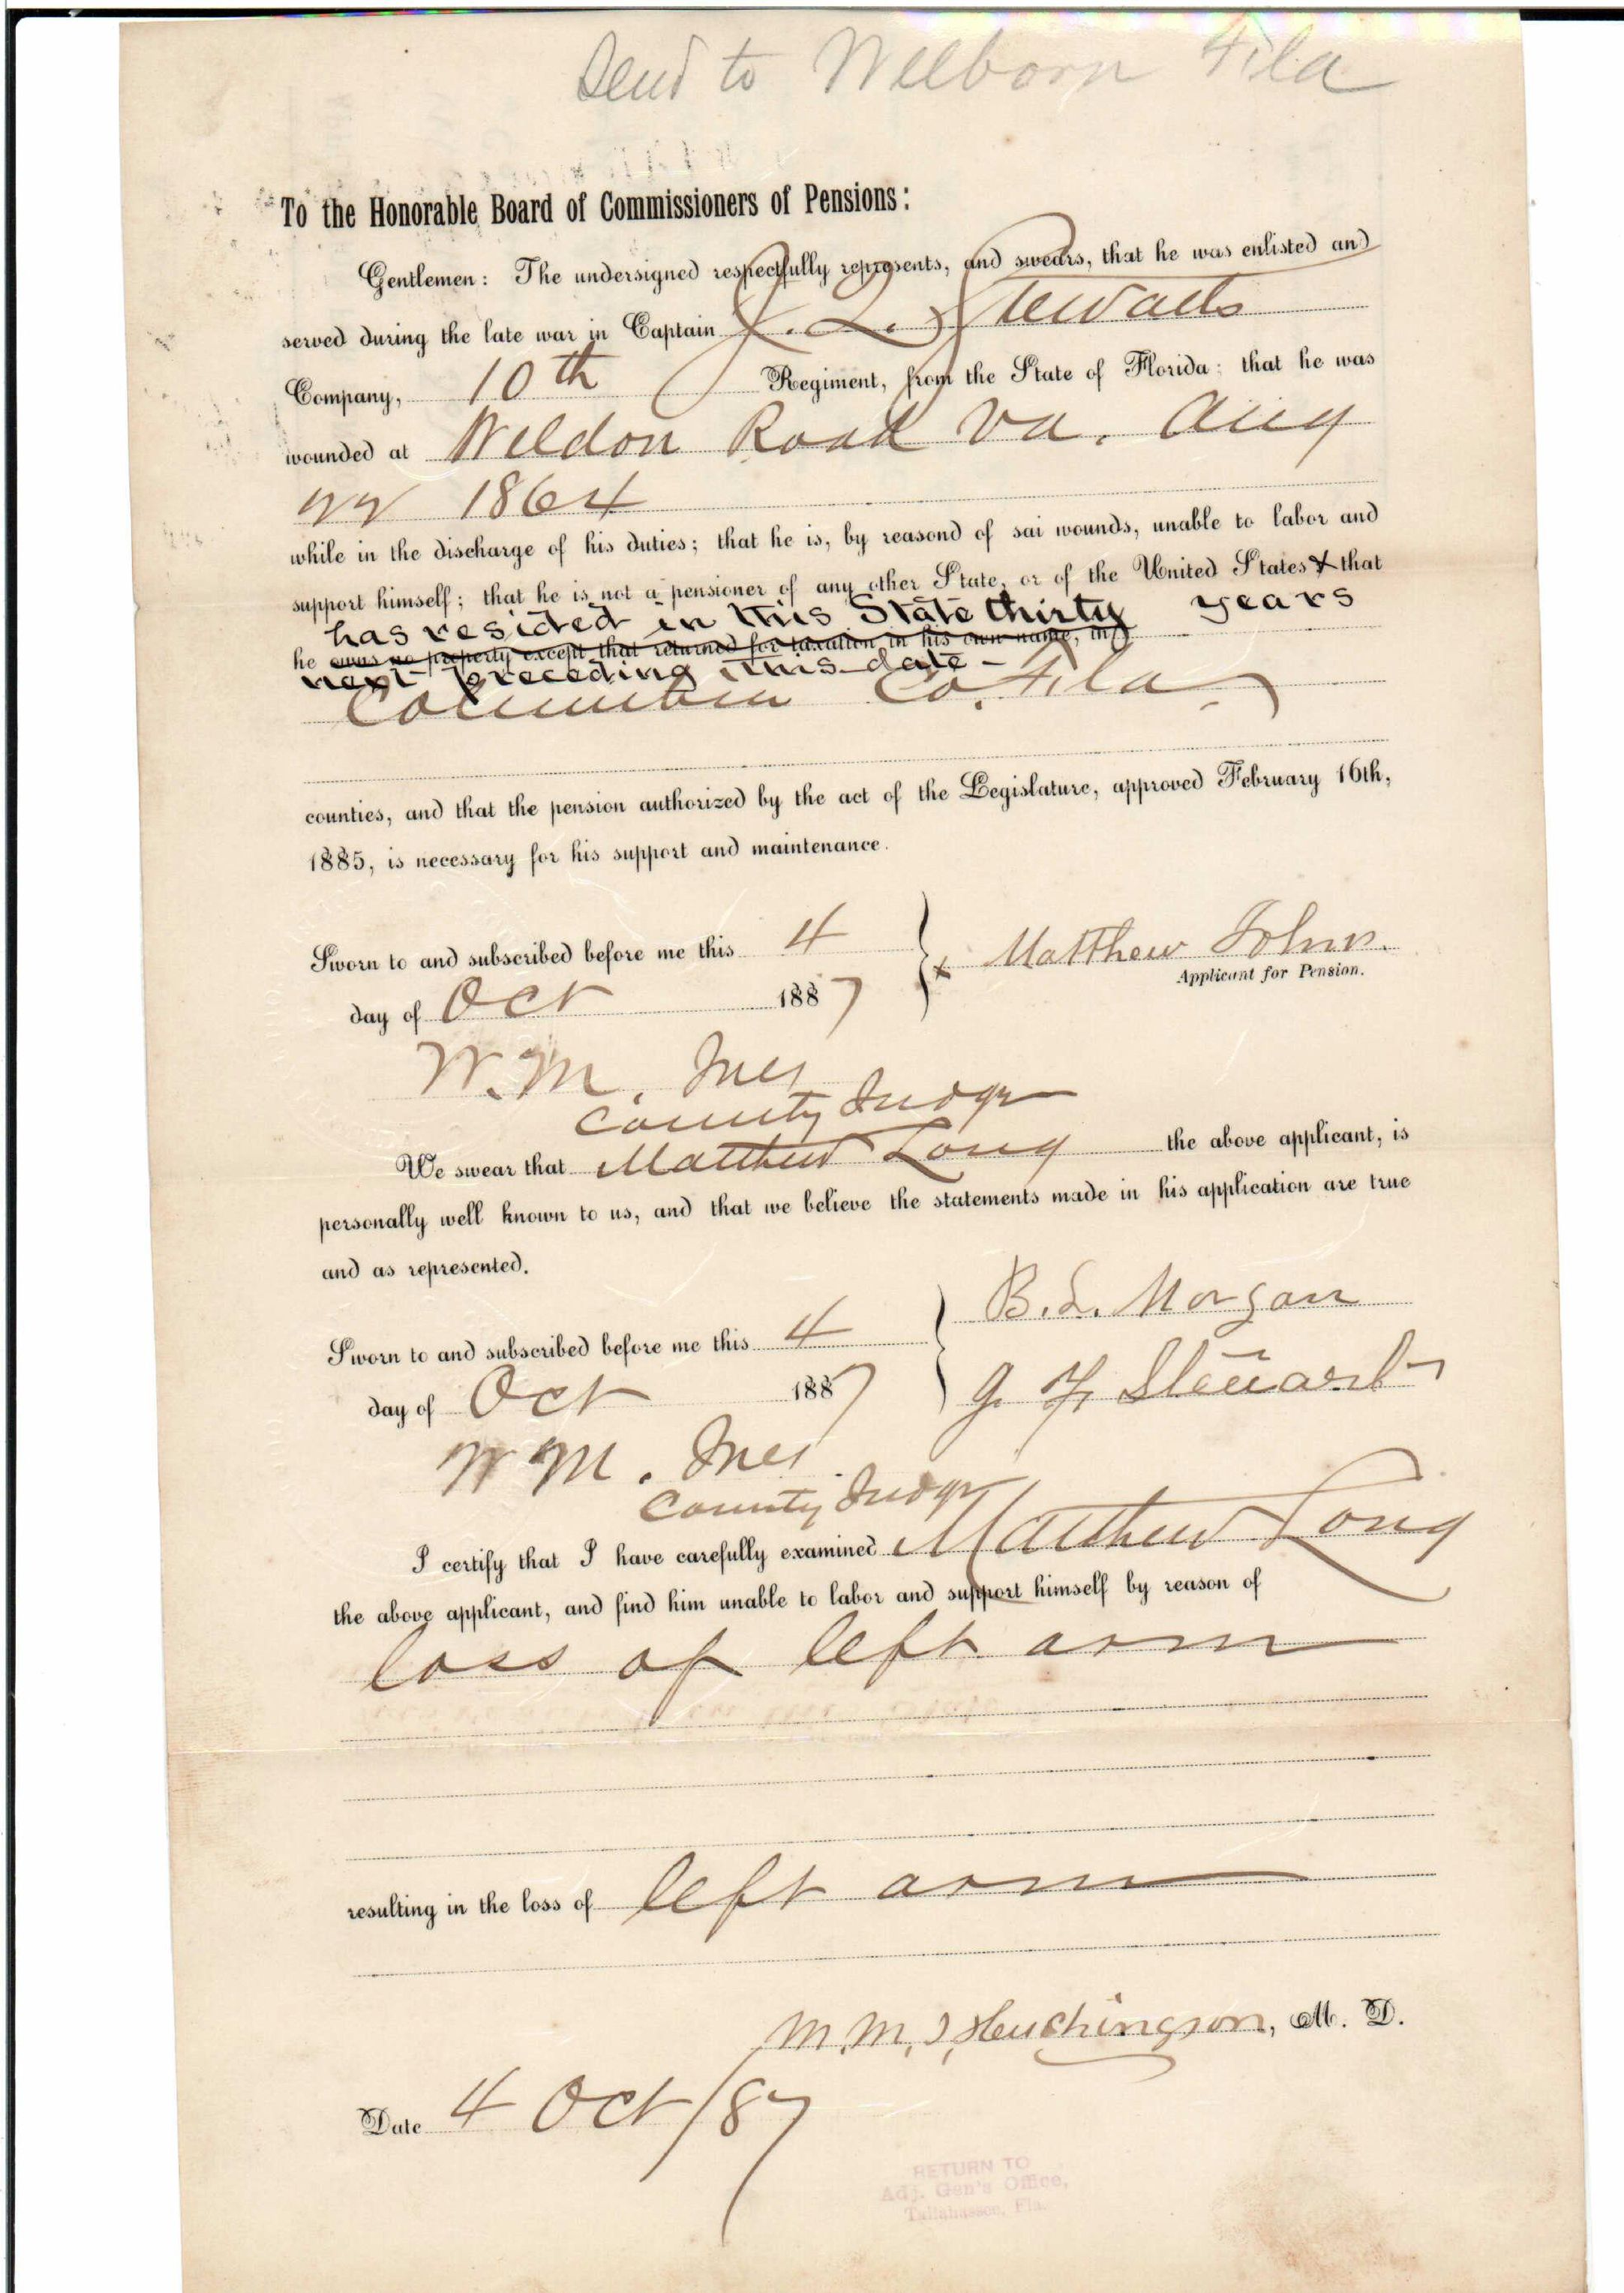 Send to Welborn Fla
To the Honorable Board of Commissioners of Pensions:
Gentlemen: The undersigned respectfully represents, and swears, that he was enlisted and
served during the late war in Captain J. Q. Stewarts
Company, 10th Regiment, from the State of Florida; that he was
wounded at Weldon Road Va. Aug
22 1864
while in the discharge of his duties; that he is, by reasond of sai wounds, unable to labor and
support himself; that he is not a pensioner of any other State, or of the United States & that
has resided in this State thirty years
he owns no property except that returned for taxation in his own name, in
next preceding this date -
Columbia Co. Fla
counties, and that the pension authorized by the act of the Legislature, approved February 16th,
1885, is necessary for his support and maintenance.
Sworn to and subscribed before me this 4
x Matthew
Applicant for Pension.
day of Oct 1887
W. M. Ives
County Judge
We swear that Matthew Long the above applicant, is
personally well known to us, and that we believe the statements made in his application are true
and as represented.
B. L. Morgan
Sworn to and subscribed before me this 4
day of Oct 1887
Stewart
W M. Ives
County Judge
I certify that I have carefully examined Matthew Long
the above applicant, and find him unable to labor and support himself by reason of
loss of left arm
resulting in the loss of left arm
M. M. J. Hutchingson, M. D.
Date 4 Oct/87
RETURN TO
Adj. Gen's Office,
Tallahassee, Fla.